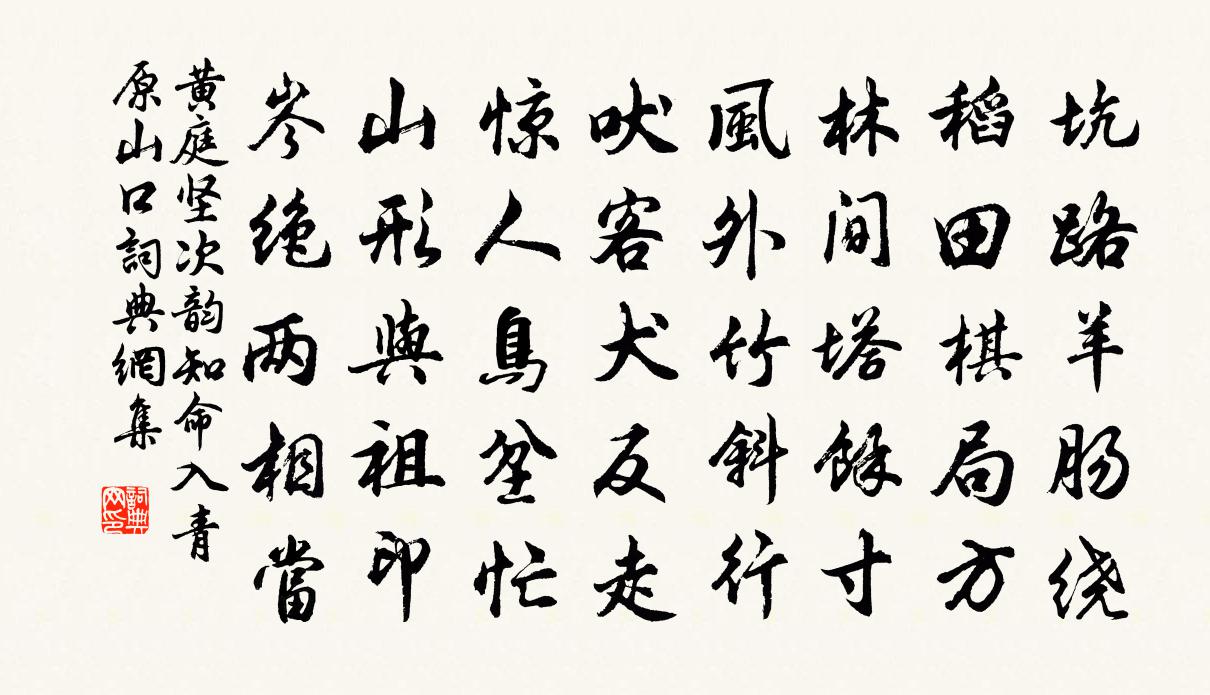 坑路羊肠绕
稻田棋局方
林间塔馀寸
風外竹斜行
吠客犬反走
惊人鳥坌忙
山形與祖印
岑绝两相當
黄庭坚次韵知命入青
原山口詞典網集
詞典
网印